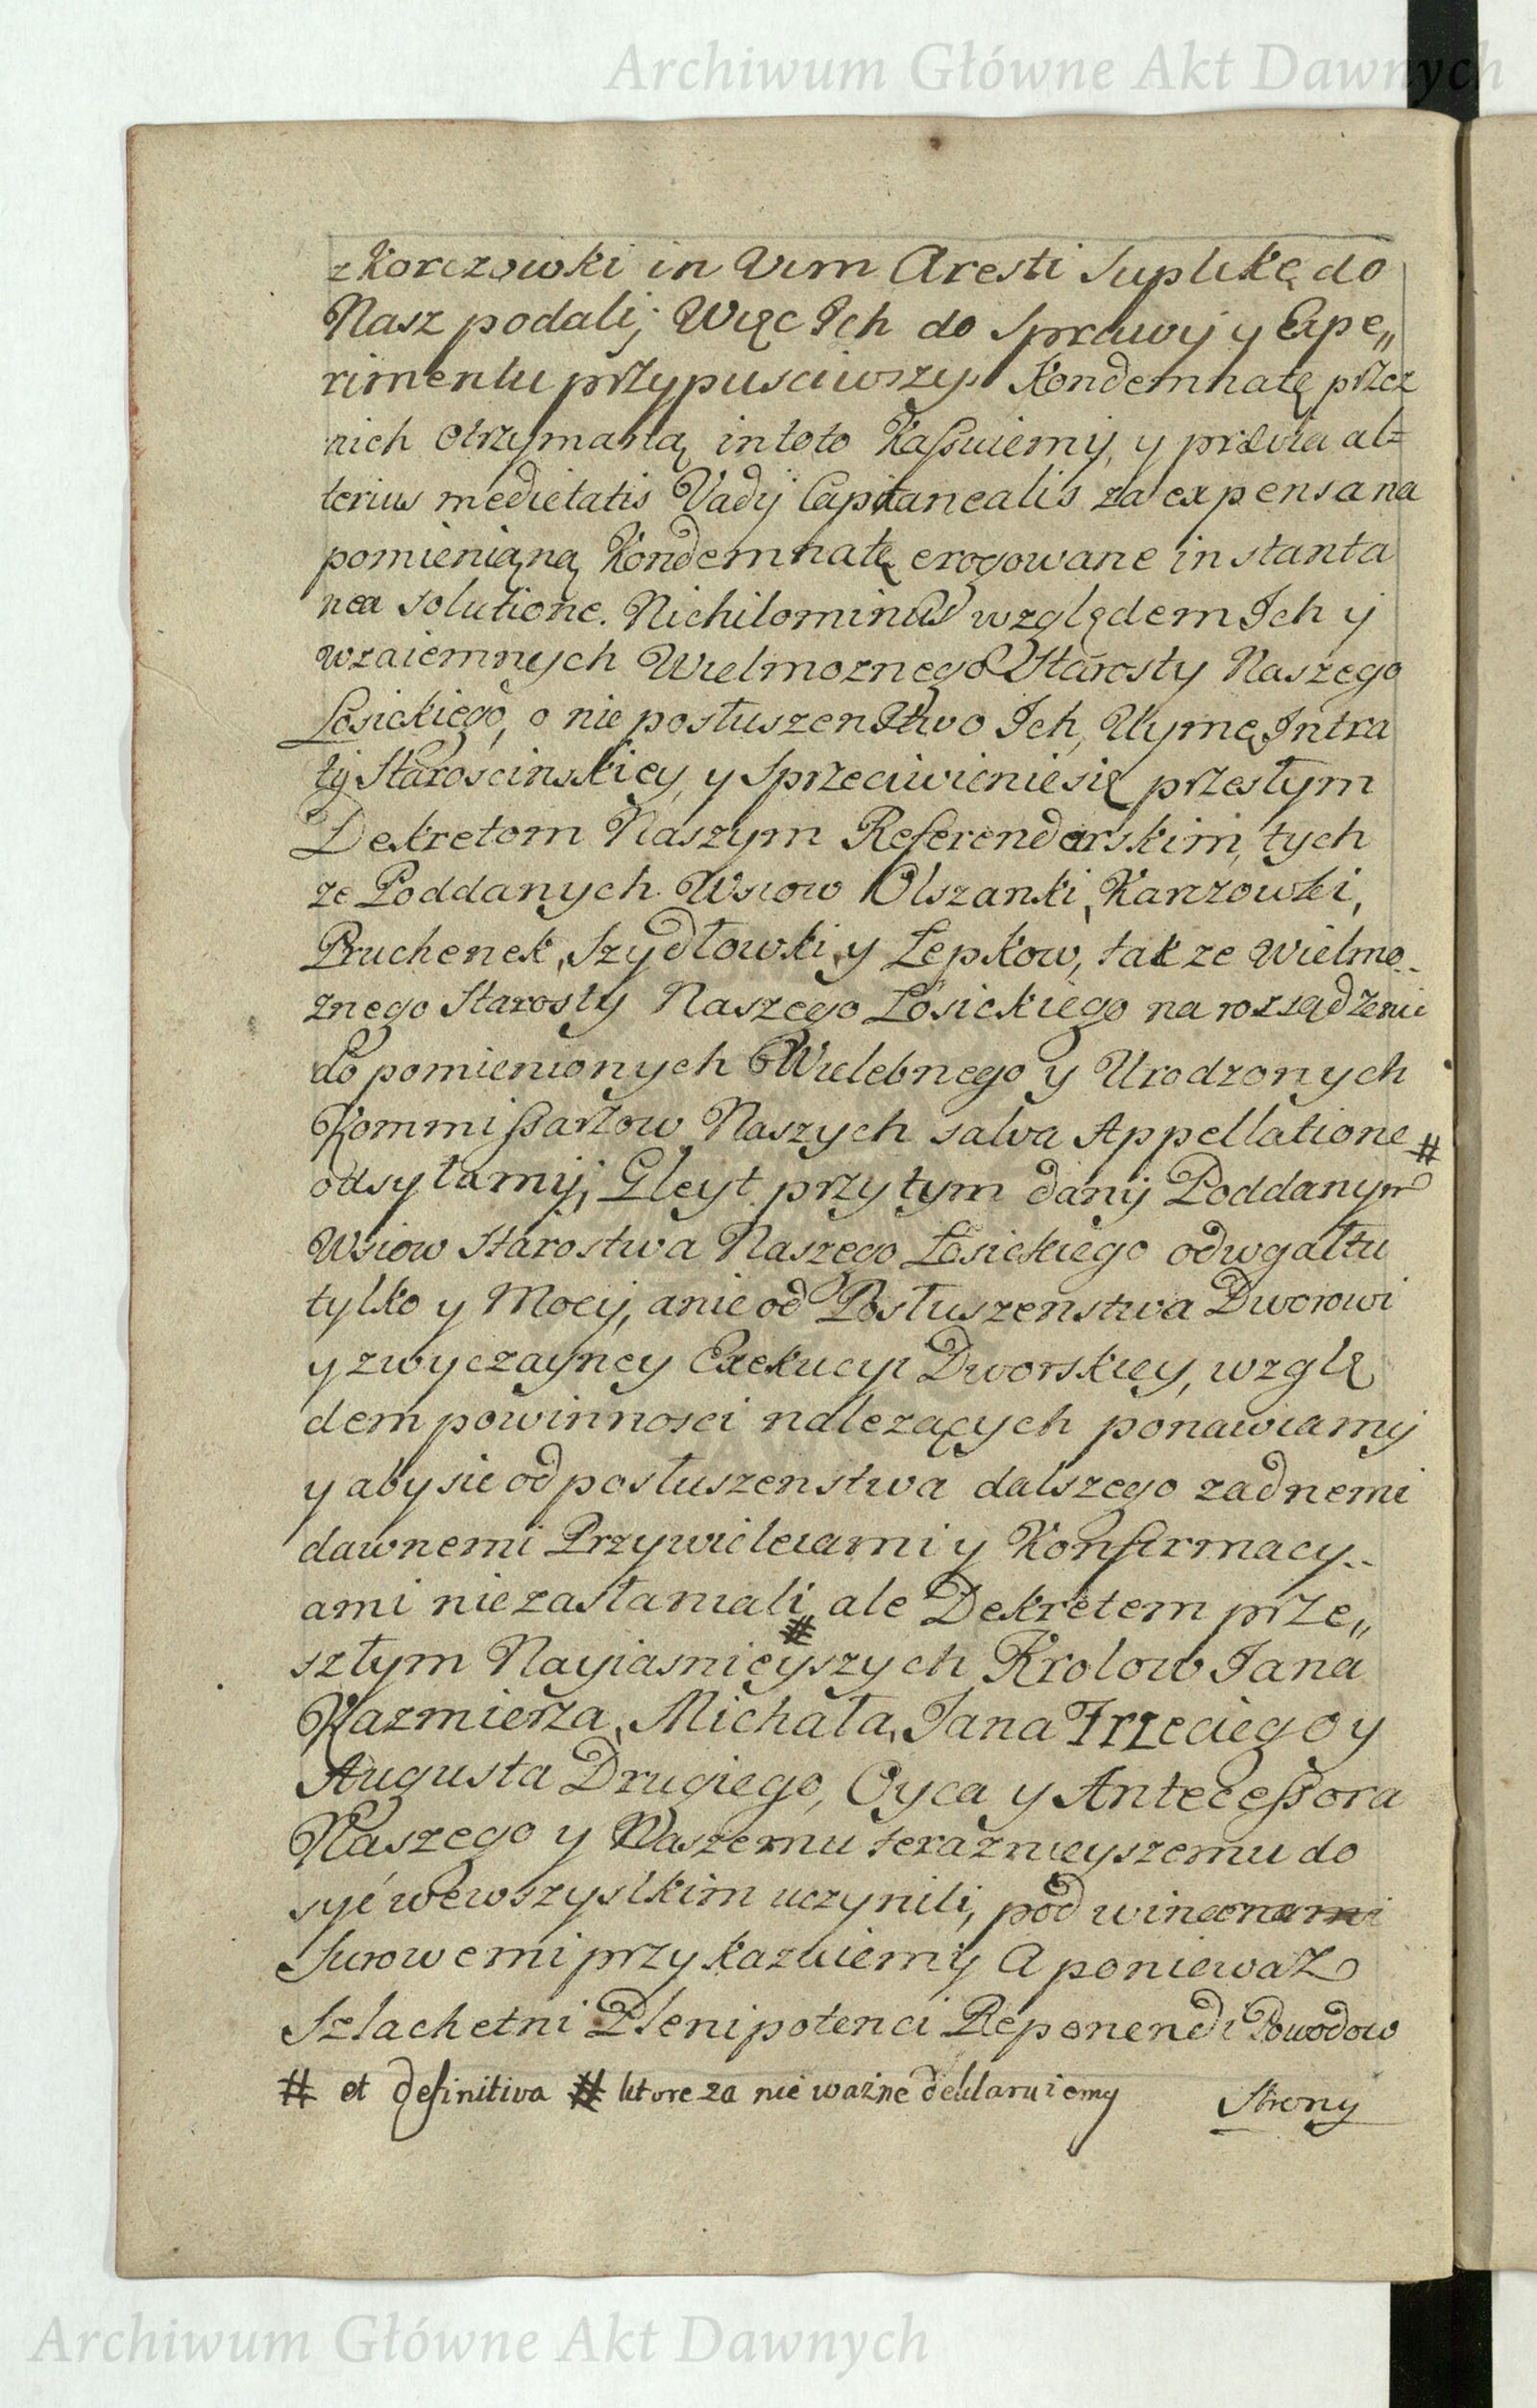 Archiwum Główne Akt Dawnych
z Korczowki in Vim Aresti Suplikę do
Nasz podali; Więc Ich do Sprawy y Expe„
rimentu przypusciwszy Kondemnatę przez
nich otrzymaną in toto Kassuiemy, y prævia al=
terius medietatis Vadij Capitanealis za expensa na
pomienianą Kondemnatę erogowane instanta
nea solutione. Nichilominus względem Ich y
wzaiemnych Wielmoznego Starosty Naszego
Łosickiego, o nieposłuszenstwo Ich, Uymę Intra
ty Staroscinskiey, y Sprzeciwienie się przeszłym
Dekretom Naszym Referendarskim, tych
ze Poddanych Wsiow Olszanki, Karzowki,
Pruchenek, Szydłowki, y Łepkow, takze Wielmo..
znego Starosty Naszego Łosickiego na rozsądzenie
do pomienionych Wielebnego y Urodzonych
Kommissarzow Naszych salva Appellatione #
odsyłamy; Gleyt przytym dany Poddanym
Wsiow Starostwa Naszego Łosickiego od wgałtu
tylko y Mocy, a nie od Posłuszenstwa Dworowi
y zwyczayney Exekucyi Dworskiey, wzglę
dem powinnosci nalezących ponawiamy
y aby sie od posłuszenstwa dalszego zadnemi
dawnemi Przywileiami y Konfirmacy..
ami niezasłaniali # ale Dekretem prze„
szłym Nayiasnieyszych Krolow Jana
Kazmierza, Michała, Jana Trzeciego y
Augusta Drugiego, Oyca y Antecessora
Naszego y Naszemu teraznieyszemu do
syć wewszystkim uczynili, pod winami
Surowemi przykazuiemy A poniewaz
Szlachetni Plenipotenci Reponendi Powodow
# et definitiva # ktore za nie ważne deklaruiemy
Strony
Archiwum Główne Akt Dawnych